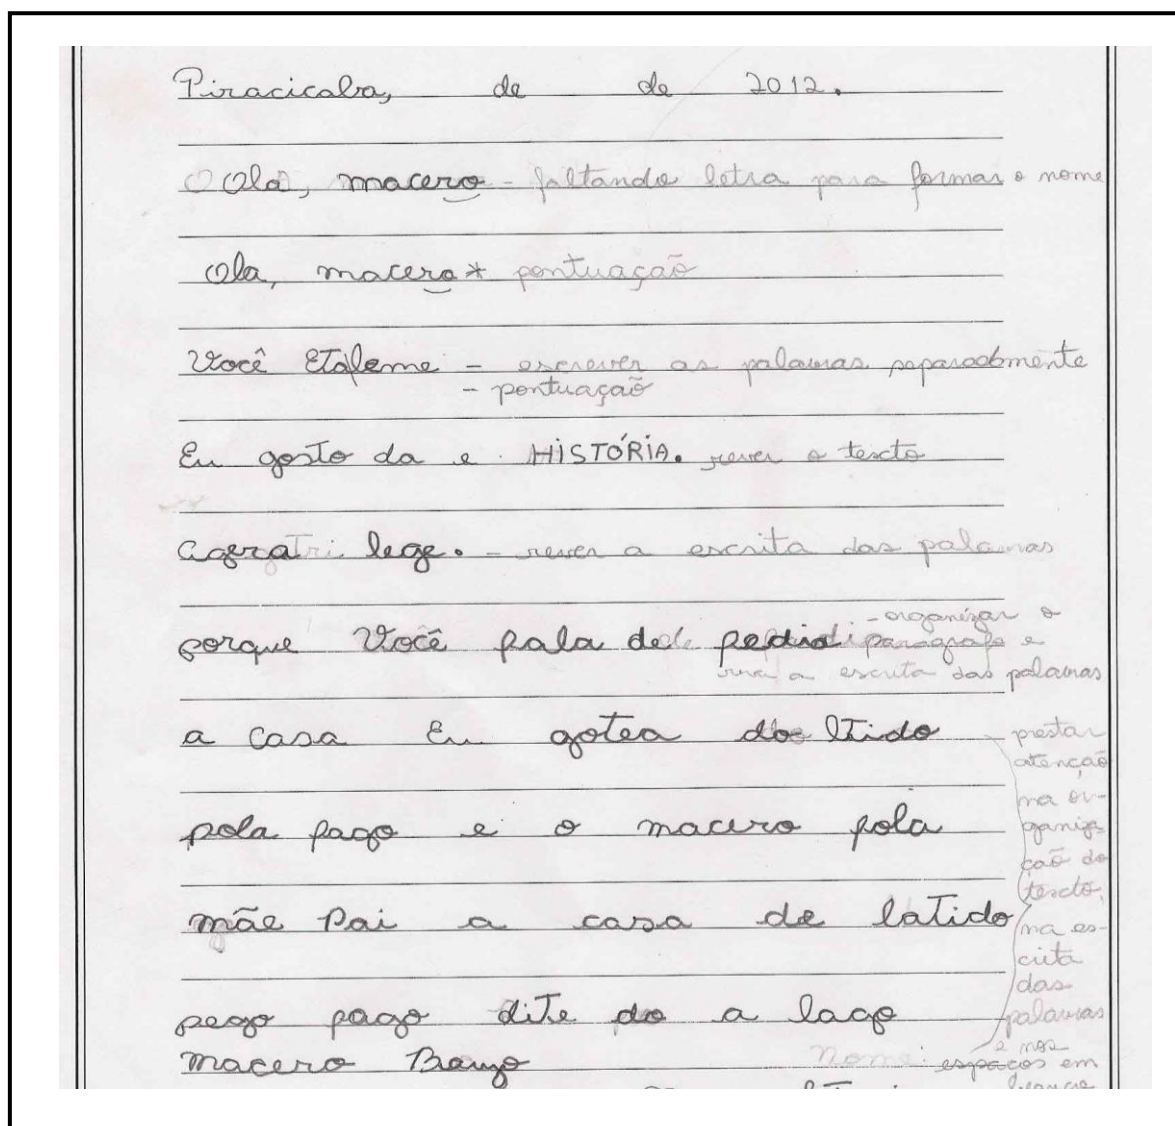 Piracicaba, de de 2012.
Olá, macero - faltando letra para formar o nome
Ola, macero * pontuação
Você Etaleme - escrever as palavras separadamente
- pontuação
Eu gosto da e HISTÓRIA. rever o texto
lege. - rever a escrita das palavras
porque Você pala dele pedia - organizar o
parágrafo e
a escrita das palavras
a casa Eu gotea do lTido
pola pago e o macero pola
mãe Pai a casa de laTido
pego pago diTe do a lago
macero Nome:
prestar
atenção
na or-
ganiza-
ção do
texto,
na es-
crita
das
palavras
e nos
espaços em